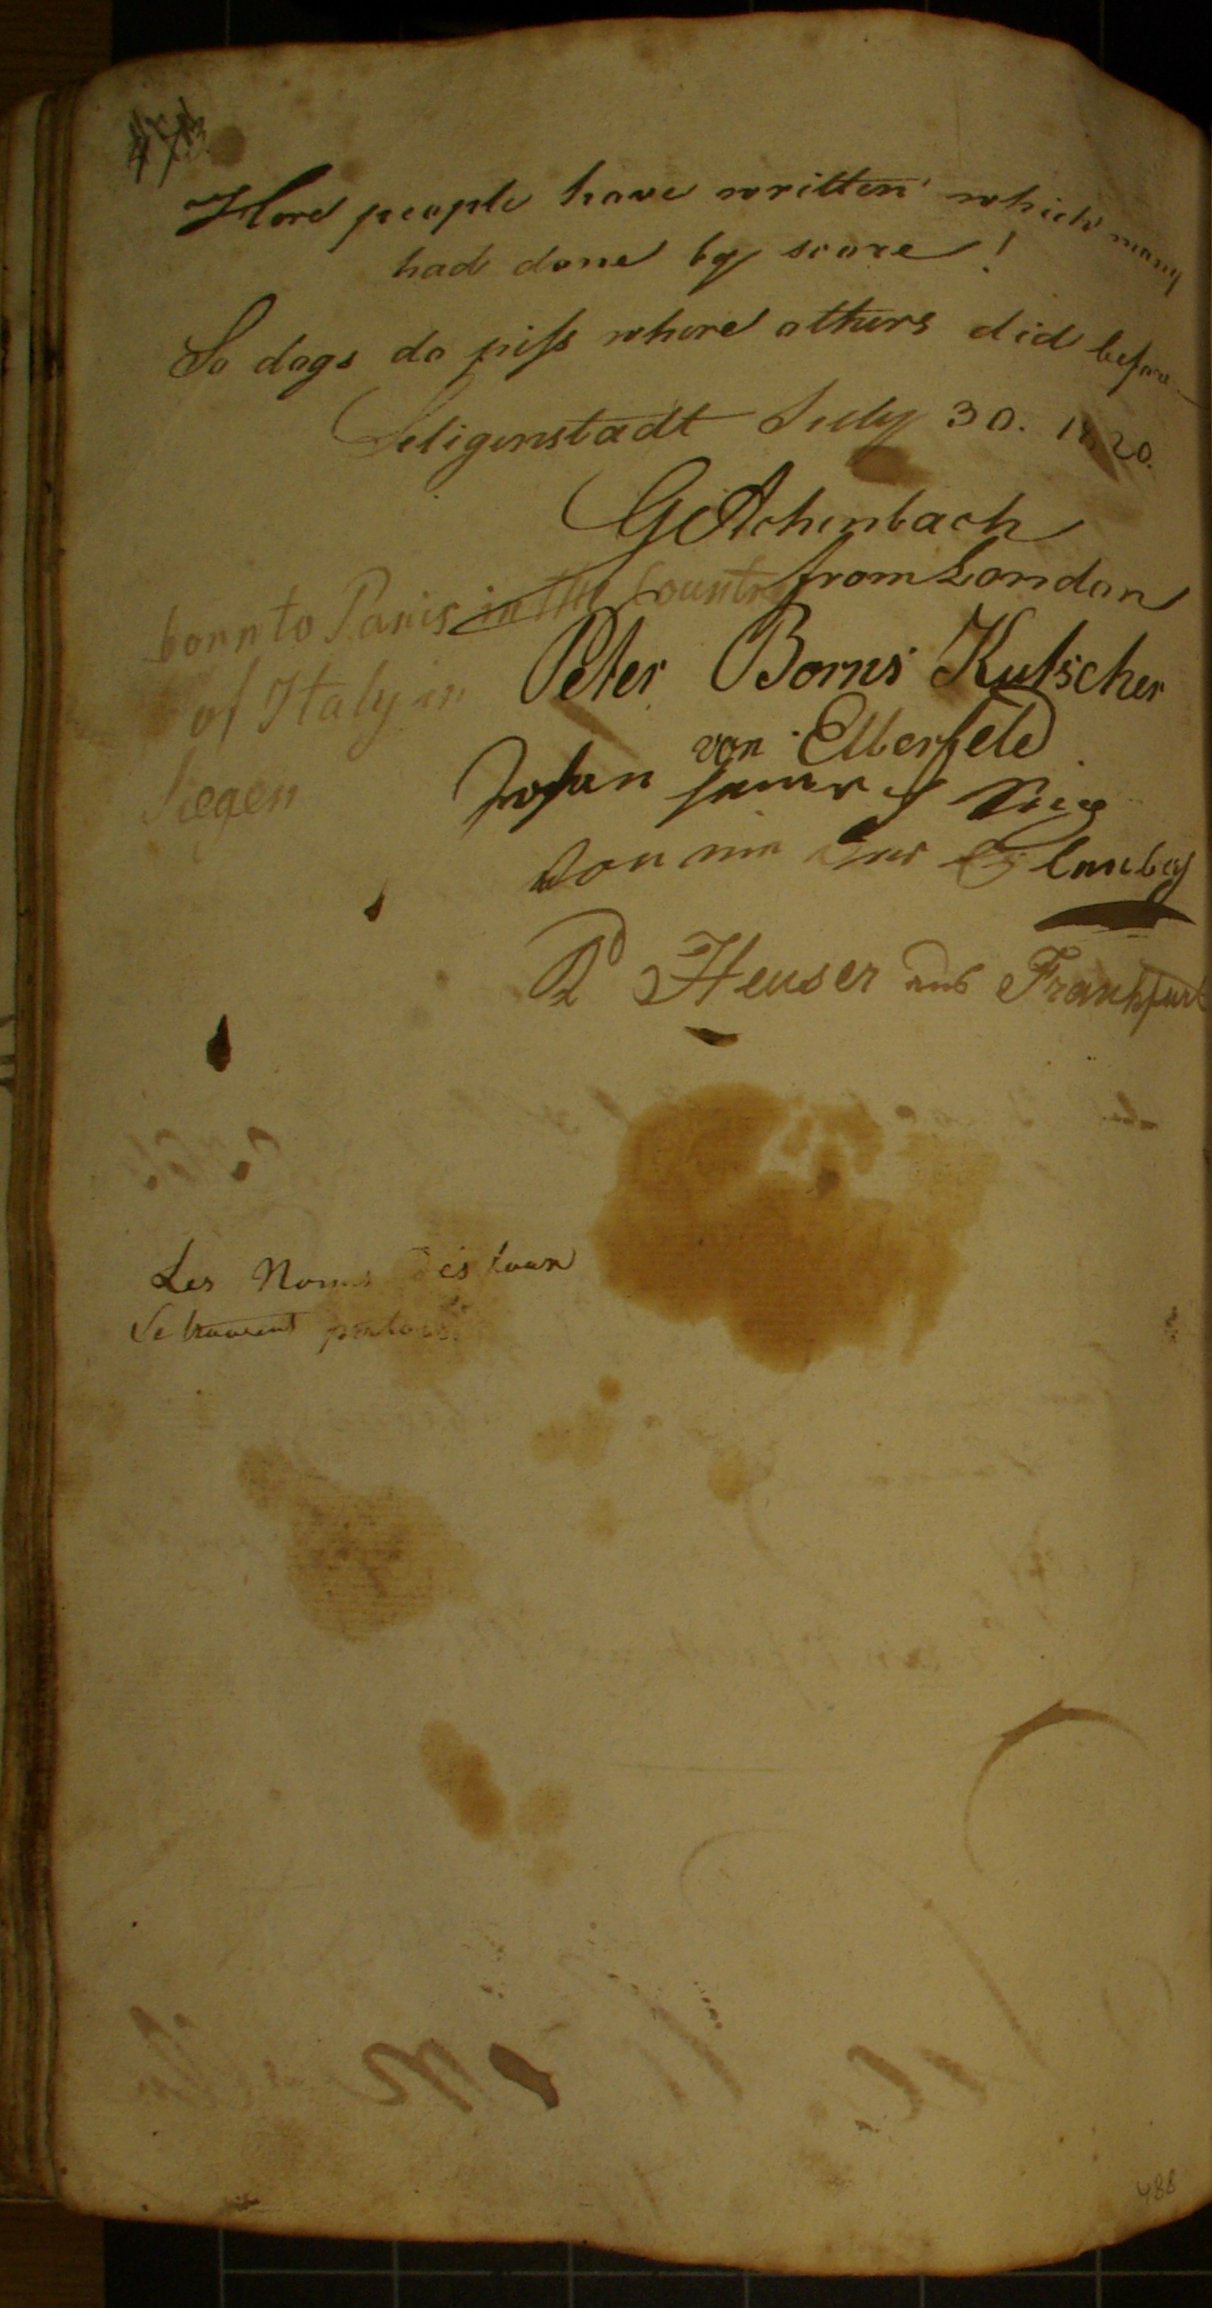 Here people have written which many
had done by score!
So dogs do piſs where others did before
Seligenstadt July 30. 1820.
G Achenbach
from London
born to Paris in the Country
of Italy in
Siegen
Peter Borns Kutscher
von Elberfeld
Johan
von
P Heuser aus Frankfurt
Les Noms des
Se trouvent partout
488